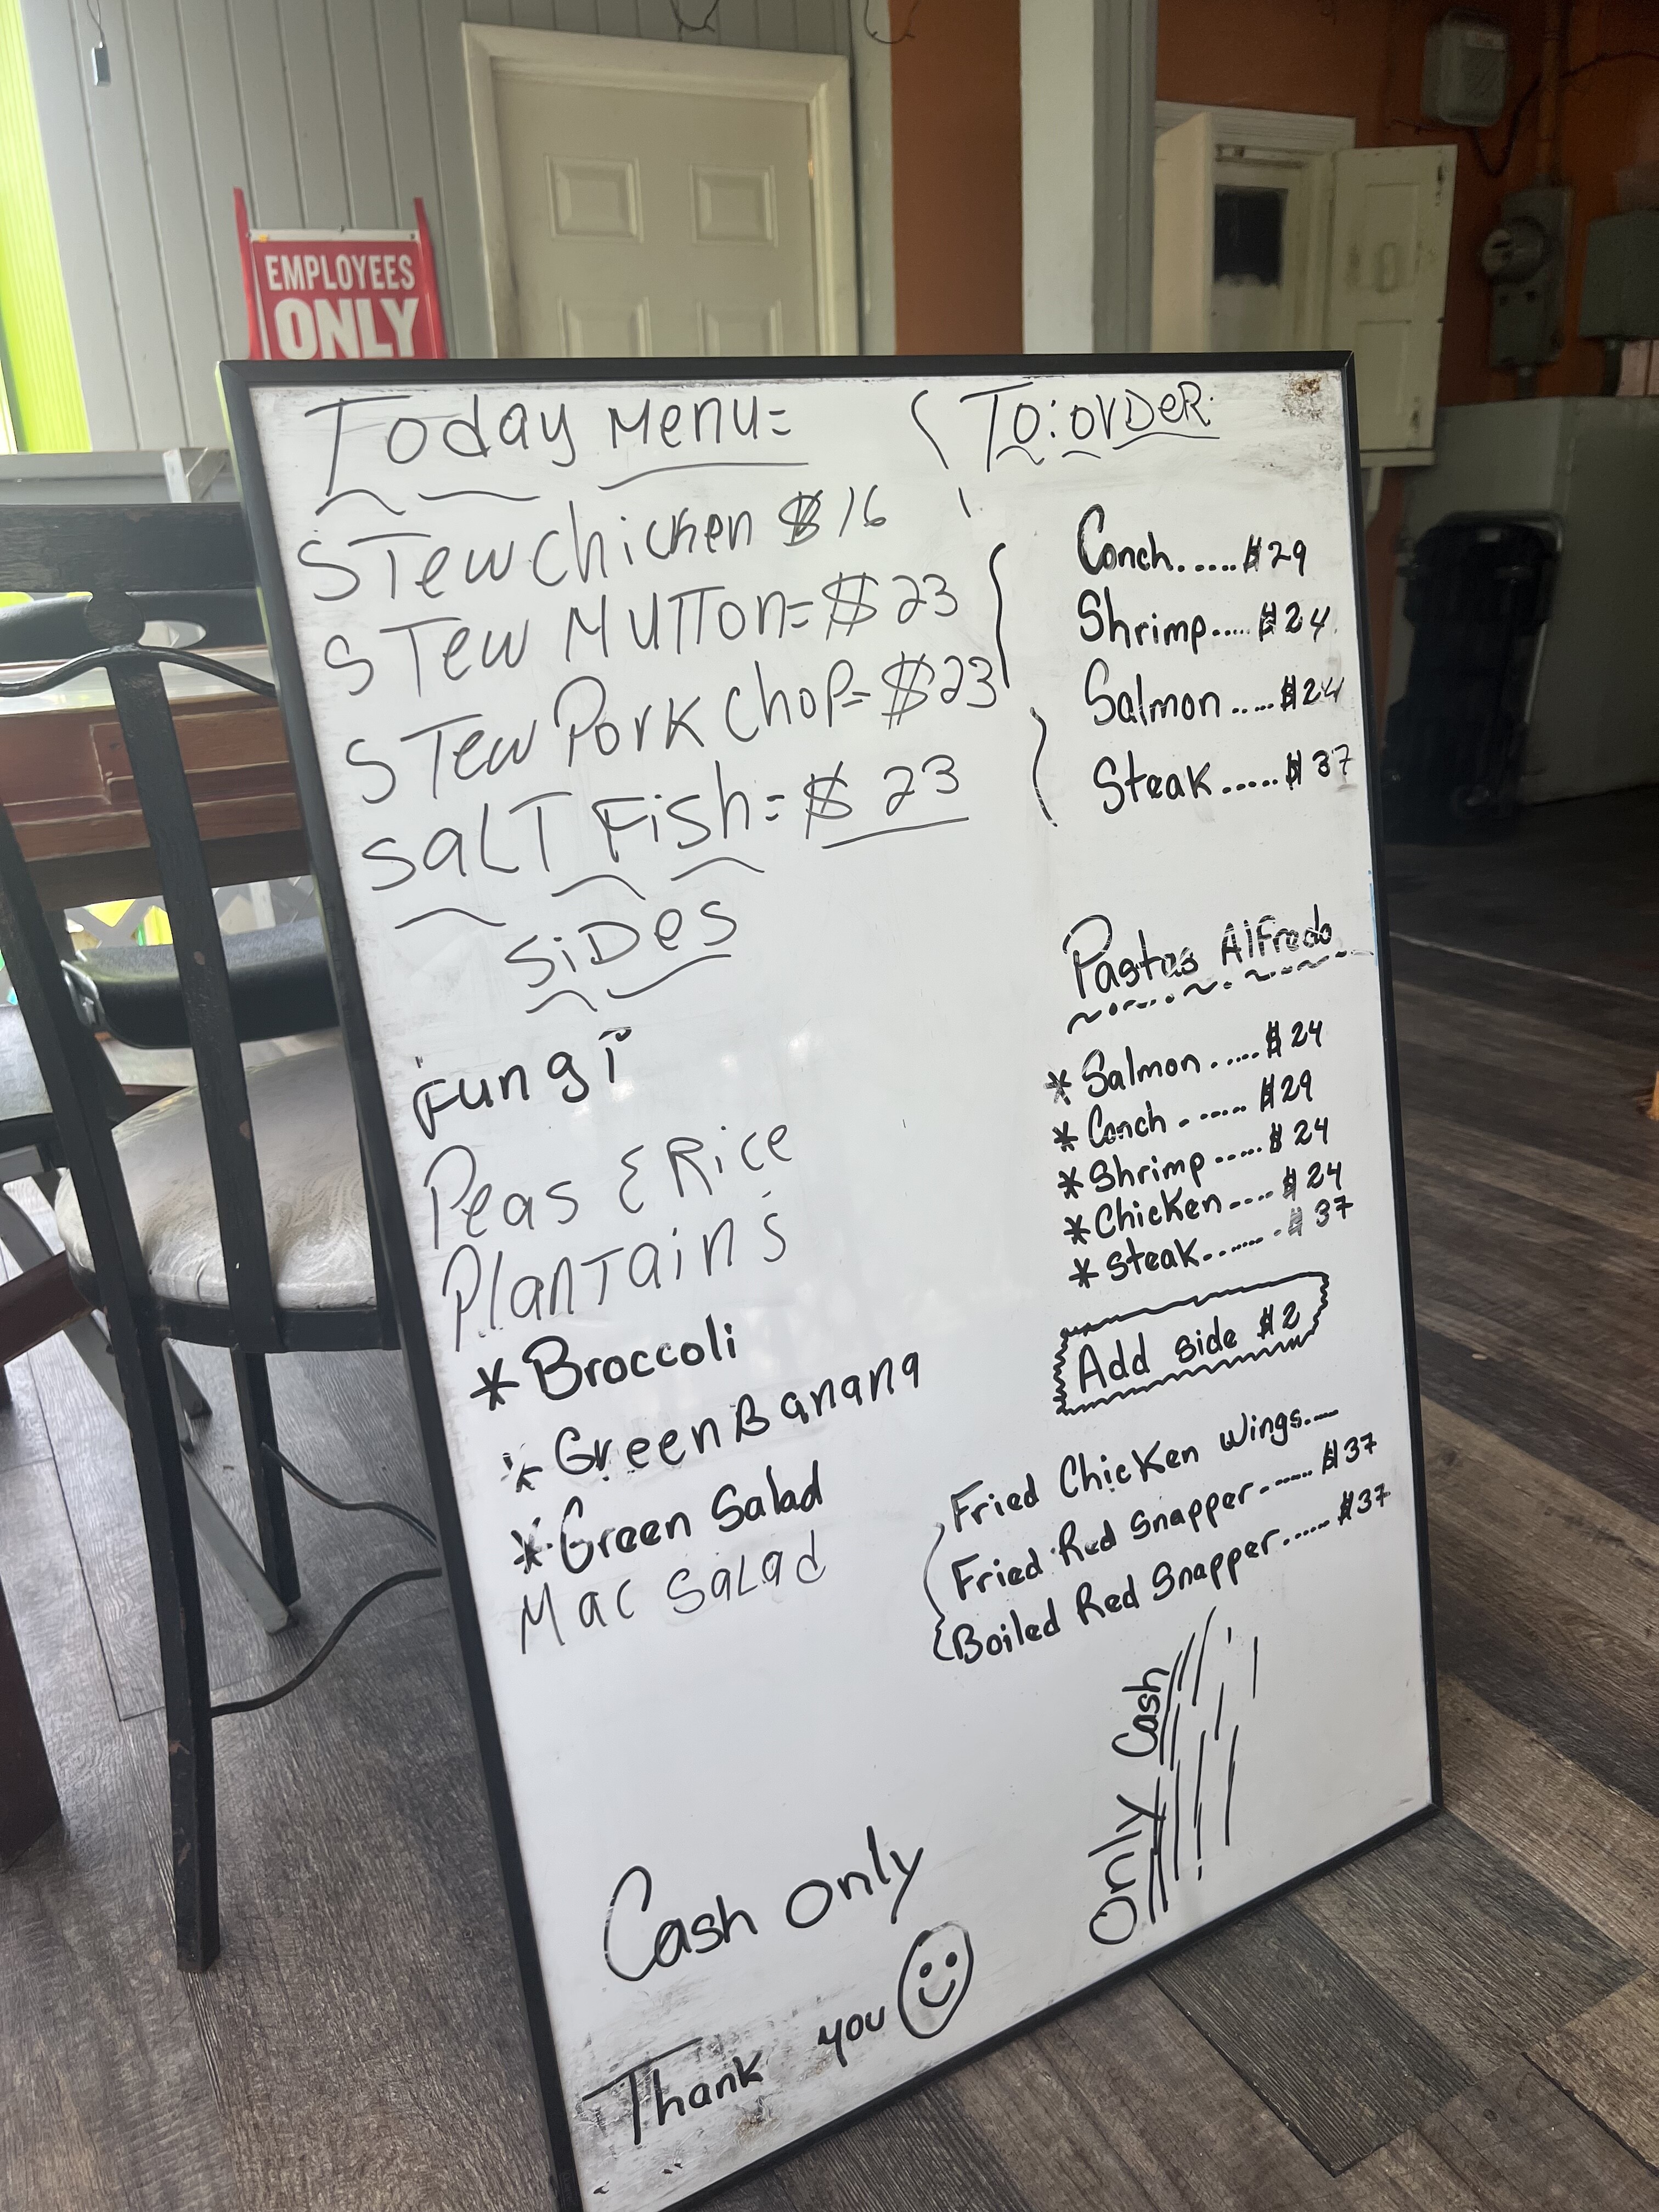 EMPLOYEES
ONLY
Today Menu=
STew Chicken $16
STew MuTTon=$23
STew Pork Chop=$23
SaLT Fish=$23
SiDes
Fungi
Peas & Rice
PlanTains
* Broccoli
* Green Banana
* Green Salad
Mac Salad
Cash only
Thank you
To:orDeR:
Conch......$29
Shrimp.....$24
Salmon.....$24
Steak......$37
Pastas Alfredo
* Salmon.....$24
* Conch - ..... $29
* Shrimp.....$24
* Chicken....$24
* Steak.......$37
Add side $2
Fried Chicken Wings....
Fried Red Snapper......$37
Boiled Red Snapper......$37
Only Cash